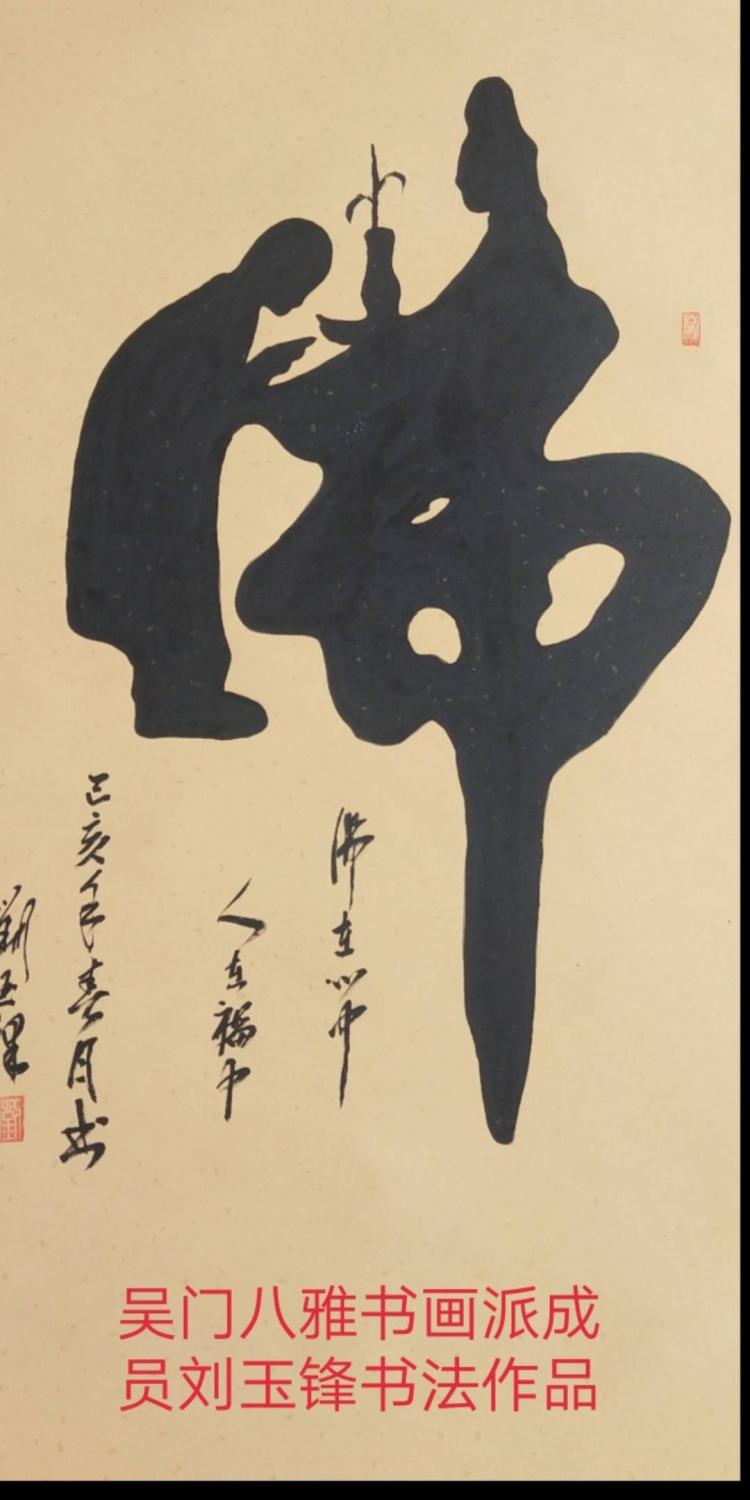 佛
佛在心中
人在福中
己亥年春月书
劉玉
吴门八雅书画派成
员刘玉锋书法作品